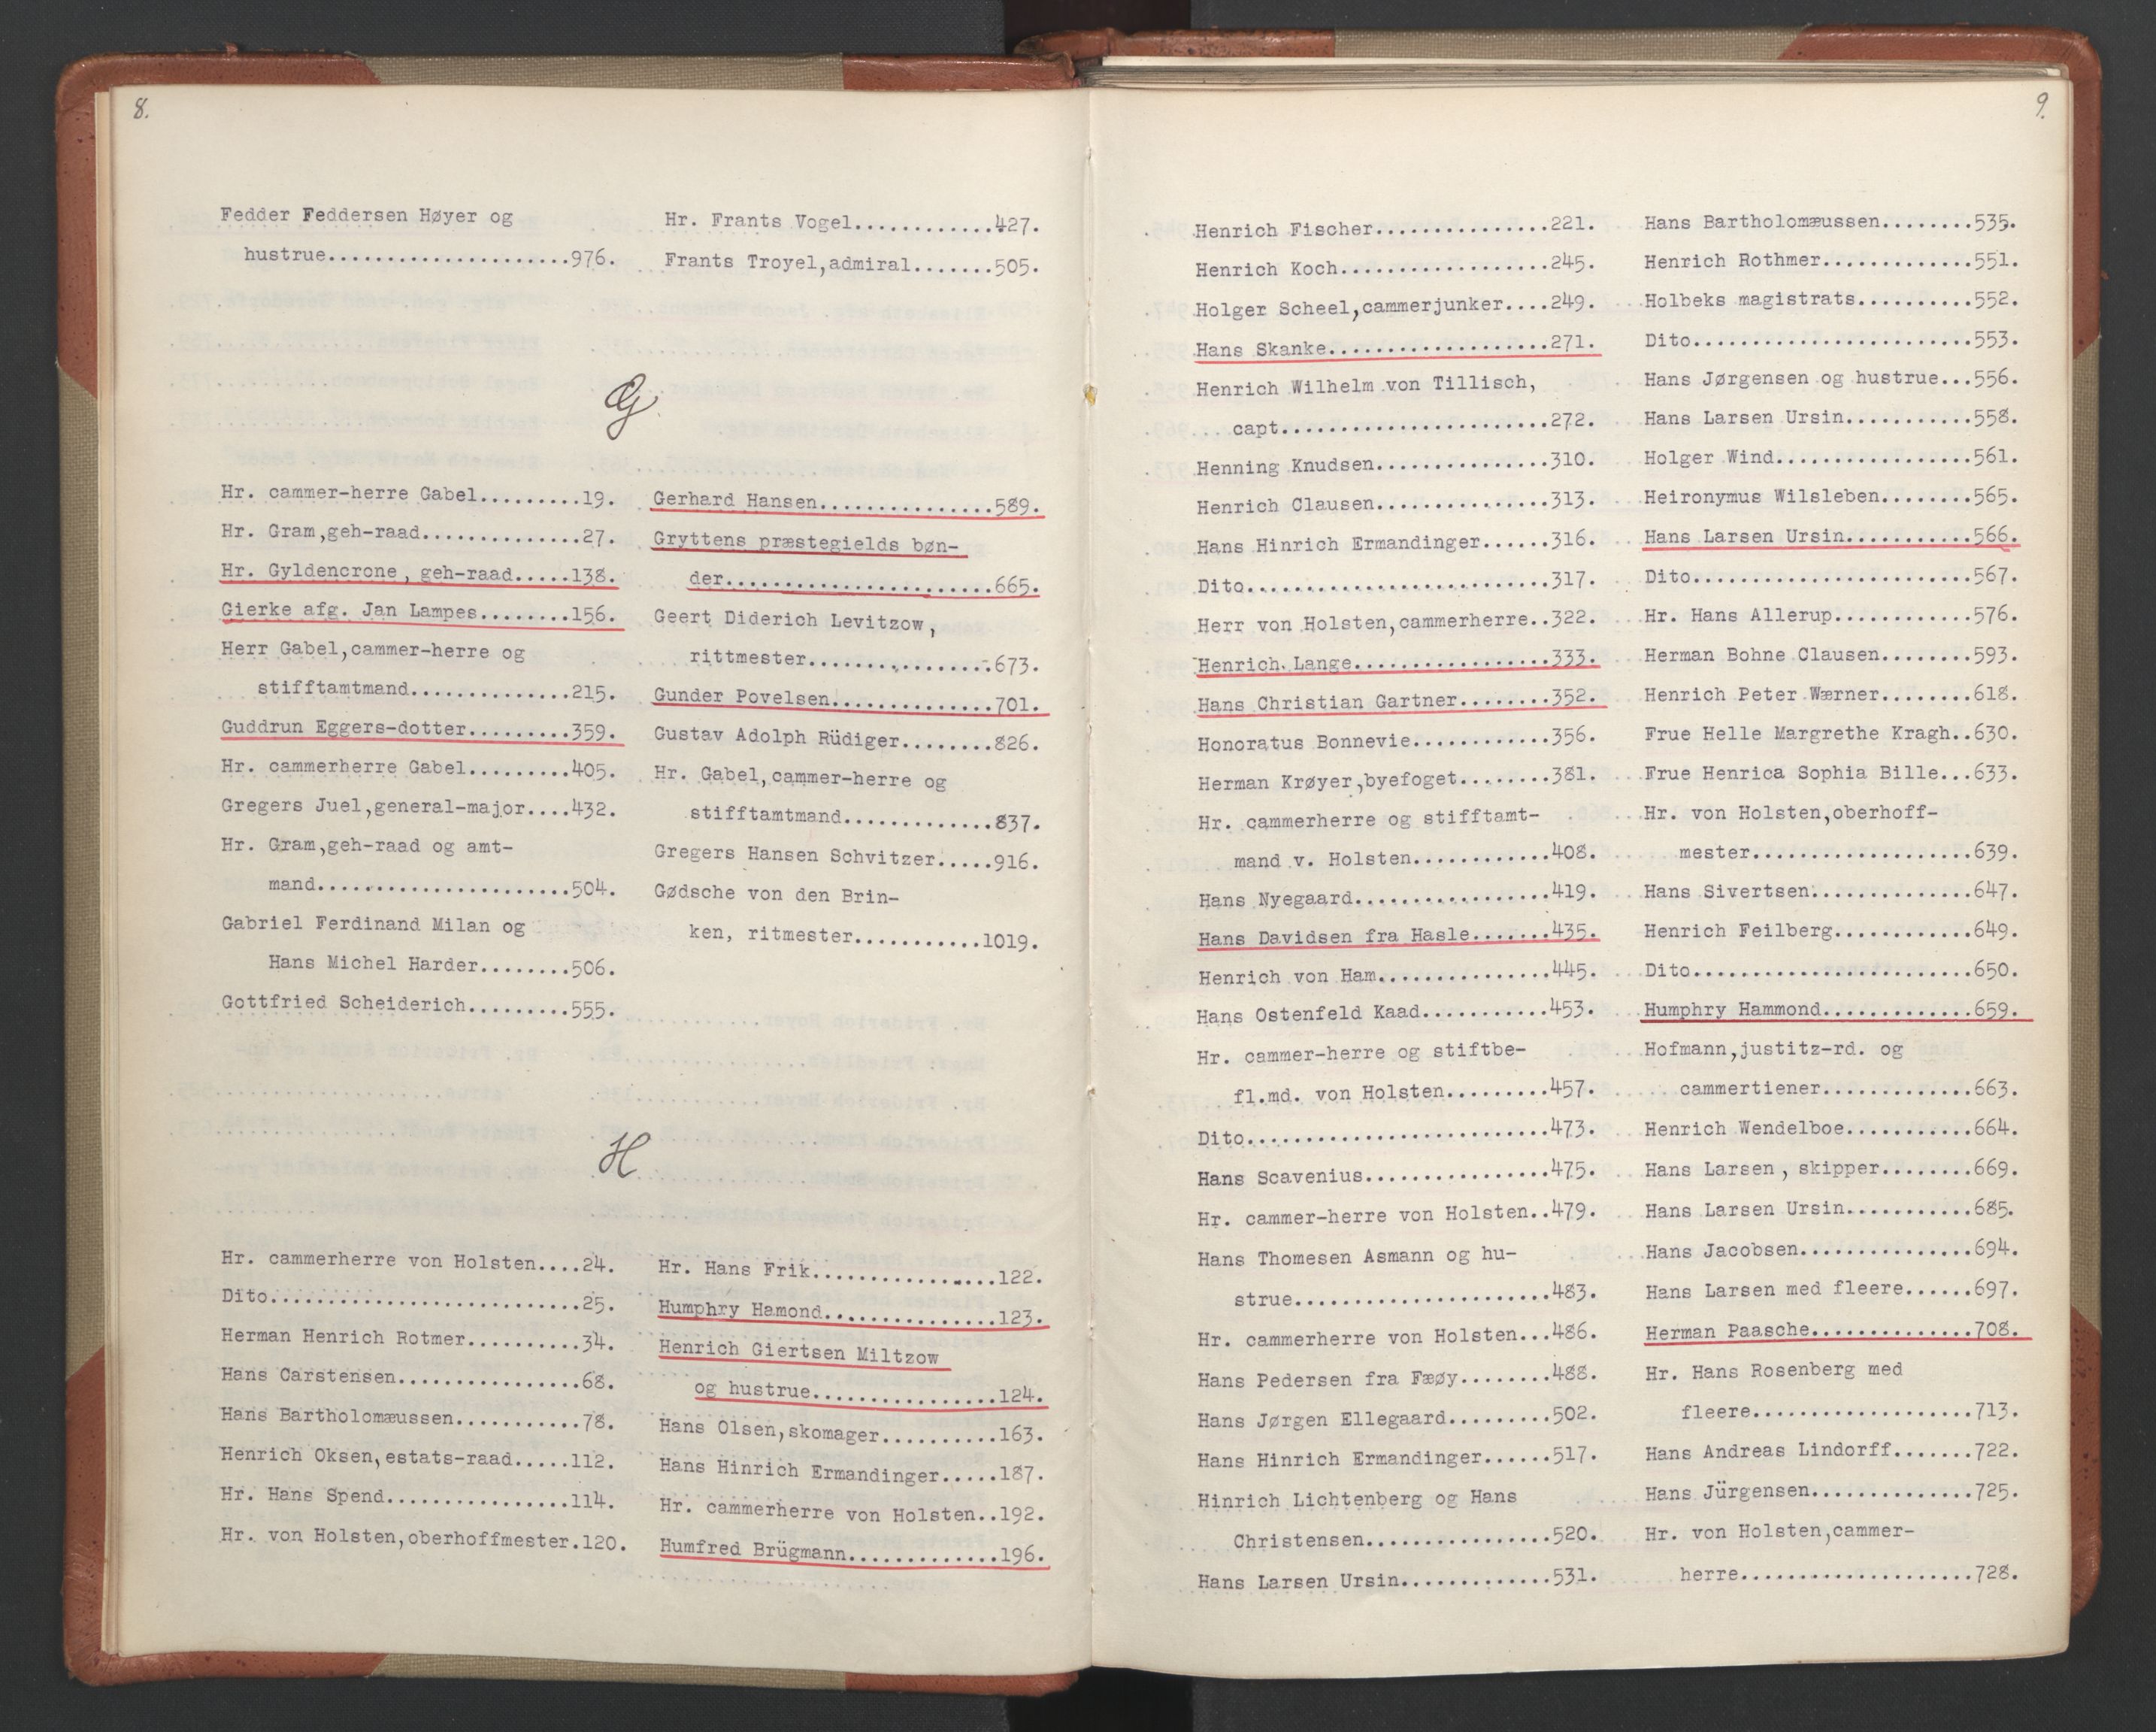 8.
Fedder Feddersen Høyer og
hustrue.....................976.
Hr. Frants Vogel............427.
Frants Troyel,admiral.......505.
G
Hr. cammer-herre Gabel.........19.
Hr. Gram,geh-raad..............27.
Hr. Gyldencrone, geh-raad.....138.
Gierke afg. Jan Lampes........156.
Herr Gabel,cammer-herre og
stifftamtmand..............215.
Guddrun Eggers-dotter.........359.
Hr. cammerherre Gabel.........405.
Gregers Juel,general-major....432.
Hr. Gram,geh-raad og amt-
mand......................504.
Gabriel Ferdinand Milan og
Hans Michel Harder........506.
Gottfried Scheiderich.........555.
Gerhard Hansen...............589.
Gryttens præstegields bøn-
der.......................665.
Geert Diderich Levitzow,
rittmester................673.
Gunder Povelsen..............701.
Gustav Adolph Rüdiger........826.
Hr. Gabel,cammer-herre og
stifftamtmand.............837.
Gregers Hansen Schvitzer.....916.
Gødsche von den Brin-
ken, ritmester...........1019.
H
Hr. cammerherre von Holsten....24.
Dito...........................25.
Herman Henrich Rotmer..........34.
Hans Carstensen................68.
Hans Bartholomæussen...........78.
Henrich Oksen,estats-raad.....112.
Hr. Hans Spend................114.
Hr. von Holsten,oberhoffmester.120.
Hr. Hans Frik................122.
Humphry Hamond...............123.
Henrich Giertsen Miltzow
og hustrue................124.
Hans Olsen,skomager..........163.
Hans Hinrich Ermandinger.....187.
Hr. cammerherre von Holsten..192.
Humfred Brügmann.............196.
9.
Henrich Fischer...............221.
Henrich Koch..................245.
Holger Scheel,cammerjunker....249.
Hans Skanke...................271.
Henrich Wilhelm von Tillisch,
capt.......................272.
Henning Knudsen...............310.
Henrich Clausen...............313.
Hans Hinrich Ermandinger......316.
Dito..........................317.
Herr von Holsten,cammerherre..322.
Henrich Lange.................333.
Hans Christian Gartner........352.
Honoratus Bonnevie............356.
Herman Krøyer,byefoget........381.
Hr. cammerherre og stifftamt-
mand v. Holsten............408.
Hans Nyegaard.................419.
Hans Davidsen fra Hasle.......435.
Henrich von Ham...............445.
Hans Ostenfeld Kaad...........453.
Hr. cammer-herre og stiftbe-
fl.md. von Holsten.........457.
Dito..........................473.
Hans Scavenius................475.
Hr. cammer-herre von Holsten..479.
Hans Thomesen Asmann og hu-
strue......................483.
Hr. cammerherre von Holsten...486.
Hans Pedersen fra Fæøy........488.
Hans Jørgen Ellegaard.........502.
Hans Hinrich Ermandinger......517.
Hinrich Lichtenberg og Hans
Christensen................520.
Hans Larsen Ursin.............531.
Hans Bartholomæussen........535.
Henrich Rothmer.............551.
Holbeks magistrats..........552.
Dito........................553.
Hans Jørgensen og hustrue...556.
Hans Larsen Ursin...........558.
Holger Wind.................561.
Heironymus Wilsleben........565.
Hans Larsen Ursin...........566.
Dito........................567.
Hr. Hans Allerup............576.
Herman Bohne Clausen........593.
Henrich Peter Wærner........618.
Frue Helle Margrethe Kragh..630.
Frue Henrica Sophia Bille...633.
Hr. von Holsten,oberhoff-
mester...................639.
Hans Sivertsen..............647.
Henrich Feilberg............649.
Dito........................650.
Humphry Hammond.............659.
Hofmann,justitz-rd. og
cammertiener.............663.
Henrich Wendelboe...........664.
Hans Larsen, skipper........669.
Hans Larsen Ursin...........685.
Hans Jacobsen...............694.
Hans Larsen med fleere......697.
Herman Paasche..............708.
Hr. Hans Rosenberg med
fleere...................713.
Hans Andreas Lindorff.......722.
Hans Jürgensen..............725.
Hr. von Holsten,cammer-
herre....................728.